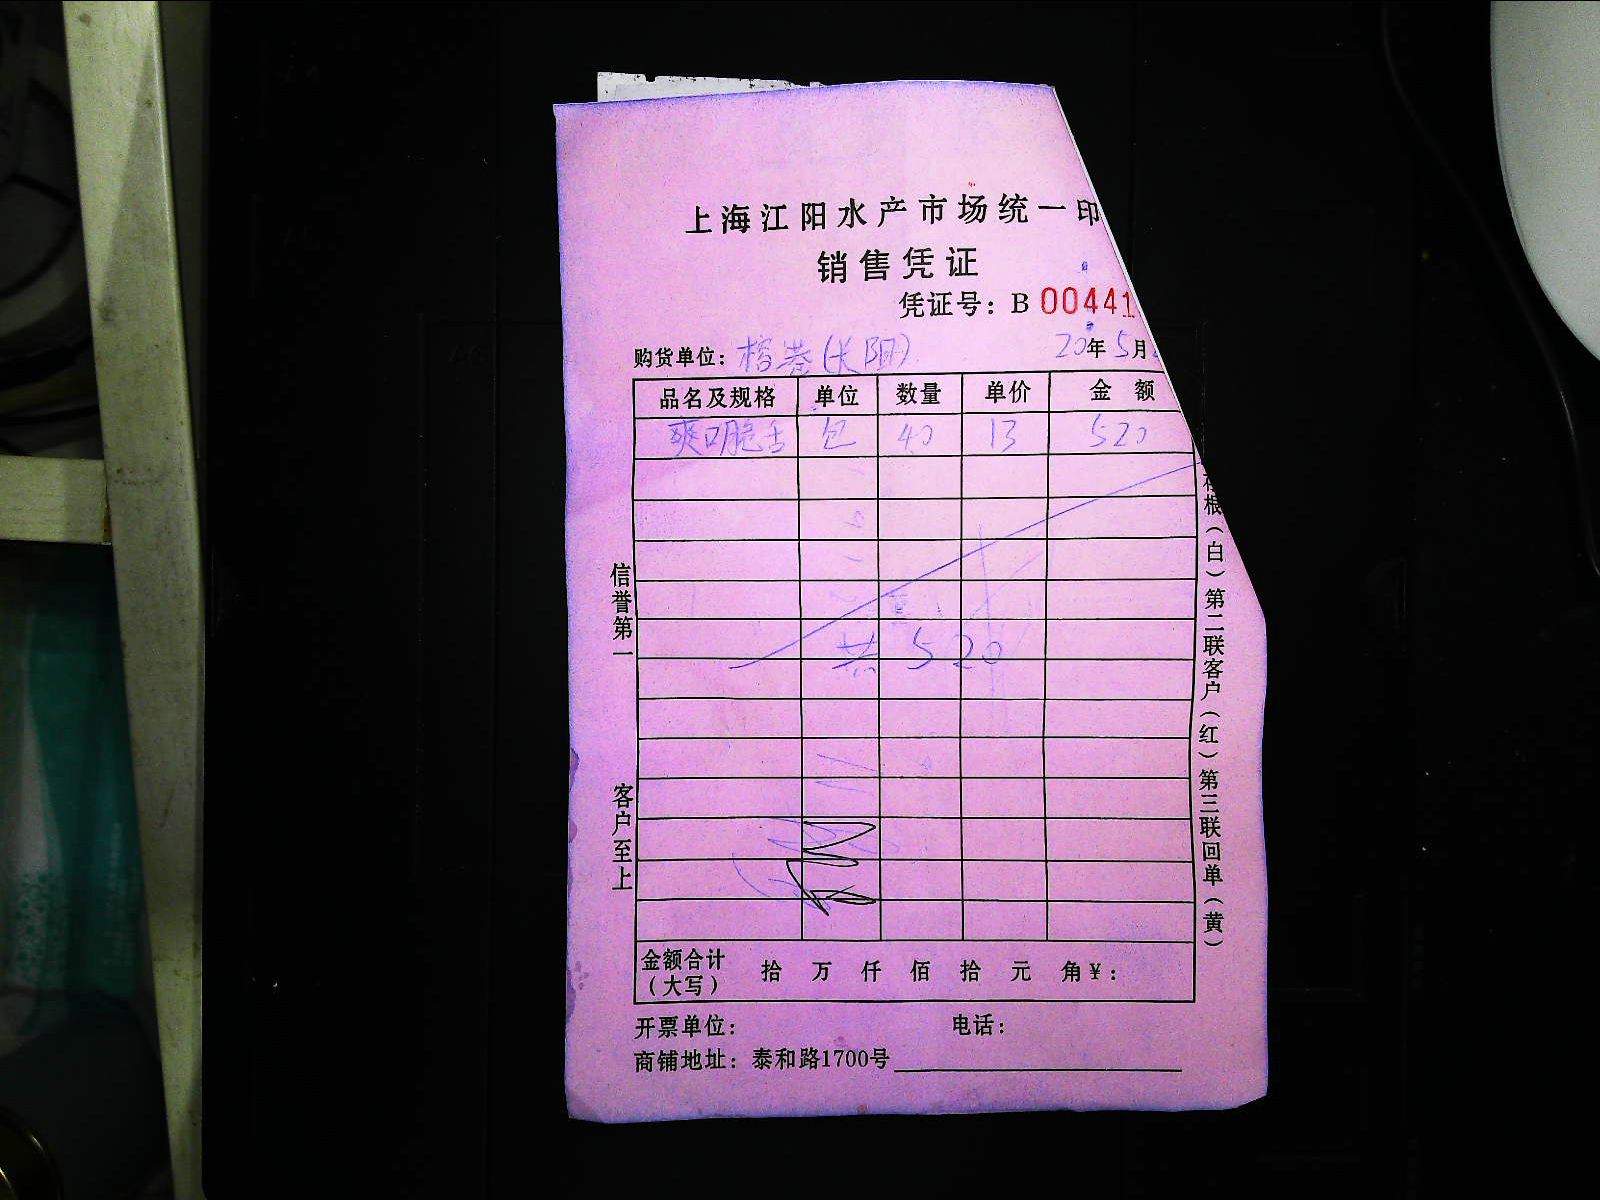 上海江阳水产市场统一印
销售凭证
凭证号：B 00441
购货单位：榕港（长阳） 20年5月
品名及规格 单位 数量 单价 金额
爽口脆舌 包 40 13 520
共 520
信誉第一
客户至上
存根（白）第二联客户（红）第三联回单（黄）
金额合计（大写） 拾 万 仟 佰 拾 元 角 ¥：
开票单位： 电话：
商铺地址：泰和路1700号